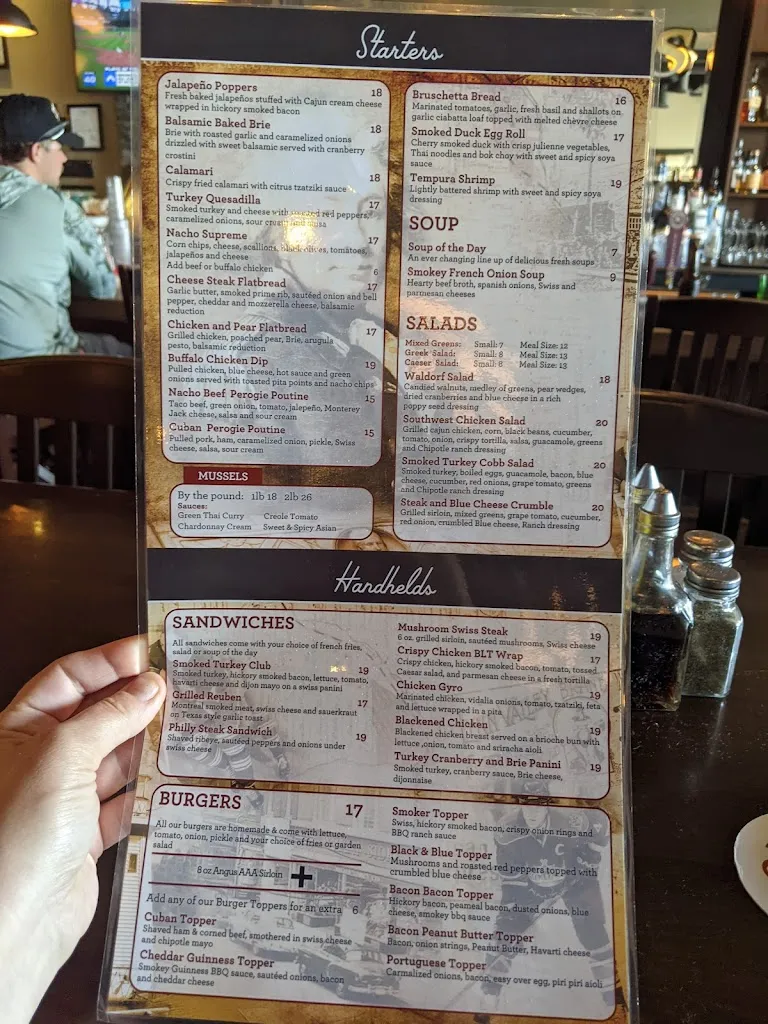 Starters
Jalapeño Poppers 18
Fresh baked jalapeños stuffed with Cajun cream cheese
wrapped in hickory smoked bacon
Balsamic Baked Brie 18
Brie with roasted garlic and caramelized onions
drizzled with sweet balsamic served with cranberry
crostini
Calamari 18
Crispy fried calamari with citrus tzatziki sauce
Turkey Quesadilla 17
Smoked turkey and cheese with roasted red peppers,
caramelized onions, sour cream and salsa
Nacho Supreme 17
Corn chips, cheese, scallions, Black olives, tomatoes,
jalapeños and cheese
Add beef or buffalo chicken 6
Cheese Steak Flatbread 17
Garlic butter, smoked prime rib, sautéed onion and bell
pepper, cheddar and mozzerella cheese, balsamic
reduction
Chicken and Pear Flatbread 17
Grilled chicken, poached pear, Brie, arugula
pesto, balsamic reduction
Buffalo Chicken Dip 19
Pulled chicken, blue cheese, hot sauce and green
onions served with toasted pita points and nacho chips
Nacho Beef Perogie Poutine 15
Taco beef, green onion, tomato, jalapeño, Monterey
Jack cheese, salsa and sour cream
Cuban Perogie Poutine 15
Pulled pork, ham, caramelized onion, pickle, Swiss
cheese, salsa, sour cream
MUSSELS
By the pound: 1lb 18 2lb 26
Sauces:
Green Thai Curry Creole Tomato
Chardonnay Cream Sweet & Spicy Asian
Bruschetta Bread 16
Marinated tomatoes, garlic, fresh basil and shallots on
garlic ciabatta loaf topped with melted chèvre cheese
Smoked Duck Egg Roll 17
Cherry smoked duck with crisp julienne vegetables,
Thai noodles and bok choy with sweet and spicy soya
sauce
Tempura Shrimp 19
Lightly battered shrimp with sweet and spicy soya
dressing
SOUP
Soup of the Day 7
An ever changing line up of delicious fresh soups
Smokey French Onion Soup 9
Hearty beef broth, spanish onions, Swiss and
parmesan cheeses
SALADS
Mixed Greens: Small: 7 Meal Size: 12
Greek Salad: Small: 8 Meal Size: 13
Caeser Salad: Small: 8 Meal Size: 13
Waldorf Salad 18
Candied walnuts, medley of greens, pear wedges,
dried cranberries and blue cheese in a rich
poppy seed dressing
Southwest Chicken Salad 20
Grilled cajun chicken, corn, black beans, cucumber,
tomato, onion, crispy tortilla, salsa, guacamole, greens
and Chipotle ranch dressing
Smoked Turkey Cobb Salad 20
Smoked turkey, boiled eggs, guacamole, bacon, blue
cheese, cucumber, red onions, grape tomato, greens
and Chipotle ranch dressing
Steak and Blue Cheese Crumble 20
Grilled sirloin, mixed greens, grape tomato, cucumber,
red onion, crumbled Blue cheese, Ranch dressing
Handhelds
SANDWICHES
All sandwiches come with your choice of french fries,
salad or soup of the day
Smoked Turkey Club 19
Smoked turkey, hickory smoked bacon, lettuce, tomato,
havarti cheese and dijon mayo on a swiss panini
Grilled Reuben 17
Montreal smoked meat, swiss cheese and sauerkraut
on Texas style garlic toast
Philly Steak Sandwich 19
Shaved ribeye, sautéed peppers and onions under
swiss cheese
Mushroom Swiss Steak 19
6 oz. grilled sirloin, sautéed mushrooms, Swiss cheese
Crispy Chicken BLT Wrap 17
Crispy chicken, hickory smoked bacon, tomato, tossed
Caesar salad, and parmesan cheese in a fresh tortilla
Chicken Gyro 19
Marinated chicken, vidalia onions, tomato, tzatziki, feta
and lettuce wrapped in a pita
Blackened Chicken 19
Blackened chicken breast served on a brioche bun with
lettuce ,onion, tomato and sriracha aioli
Turkey Cranberry and Brie Panini 19
Smoked turkey, cranberry sauce, Brie cheese,
dijonnaise
BURGERS 17
All our burgers are homemade & come with lettuce,
tomato, onion, pickle and your choice of fries or garden
salad
8 oz Angus AAA Sirloin +
Add any of our Burger Toppers for an extra 6
Cuban Topper
Shaved ham & corned beef, smothered in swiss cheese
and chipotle mayo
Cheddar Guinness Topper
Smokey Guinness BBQ sauce, sautéed onions, bacon
and cheddar cheese
Smoker Topper
Swiss, hickory smoked bacon, crispy onion rings and
BBQ ranch sauce
Black & Blue Topper
Mushrooms and roasted red peppers topped with
crumbled blue cheese
Bacon Bacon Topper
Hickory bacon, peameal bacon, dusted onions, blue
cheese, smokey bbq sauce
Bacon Peanut Butter Topper
Bacon, onion strings, Peanut Butter, Havarti cheese
Portuguese Topper
Carmalized onions, bacon, easy over egg, piri piri aioli